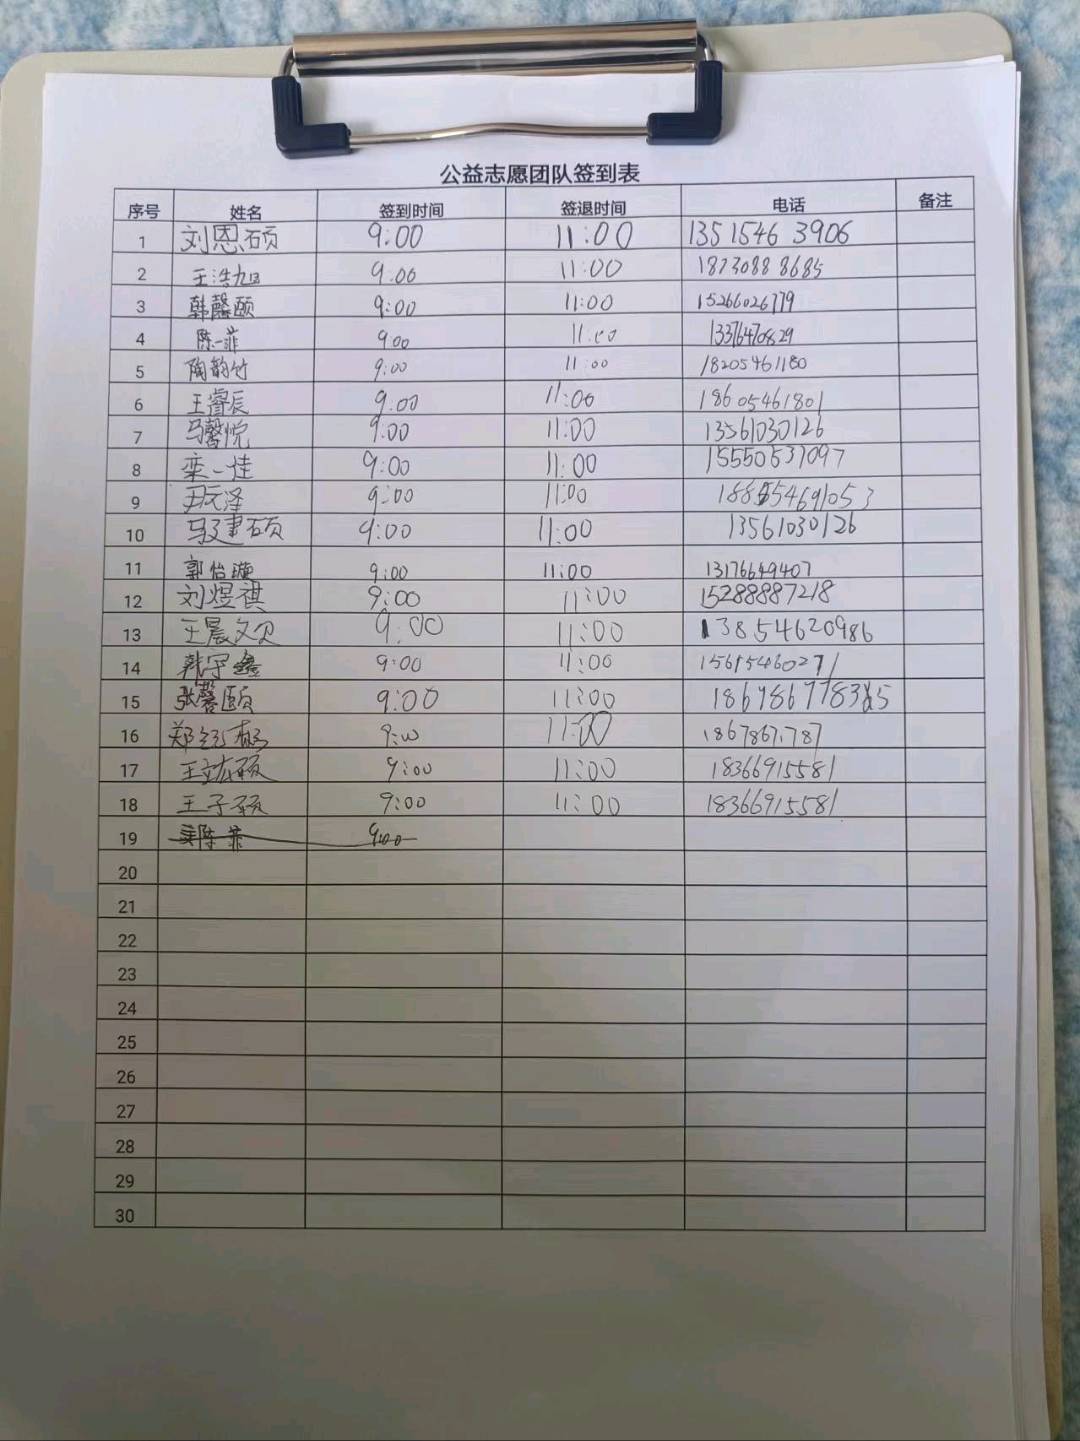 公益志愿团队签到表
序号 姓名 签到时间 签退时间 电话 备注
1 刘恩硕 9:00 11:00 13515463906
2 王浩旭 9:00 11:00 18730888685
3 韩馨颐 9:00 11:00 15266026779
4 陈一菲 9:00 11:00 13376470829
5 陶韵竹 9:00 11:00 18205461180
6 王睿辰 9:00 11:00 18605461801
7 马馨悦 9:00 11:00 13561030126
8 栾一佳 9:00 11:00 15550531097
9 尹元泽 9:00 11:00
10 马建硕 9:00 11:00 13561030126
11 郭怡璇 9:00 11:00 13176649407
12 刘煜祺 9:00 11:00 15288887218
13 王晨 9:00 11:00 13854620986
14 韩宇鑫 9:00 11:00 15615460271
15 张馨颐 9:00 11:00
16 郑 9:00 11:00 18678671787
17 王竑硕 9:00 11:00 18366915581
18 王子硕 9:00 11:00 18366915581
19 9:00
20
21
22
23
24
25
26
27
28
29
30